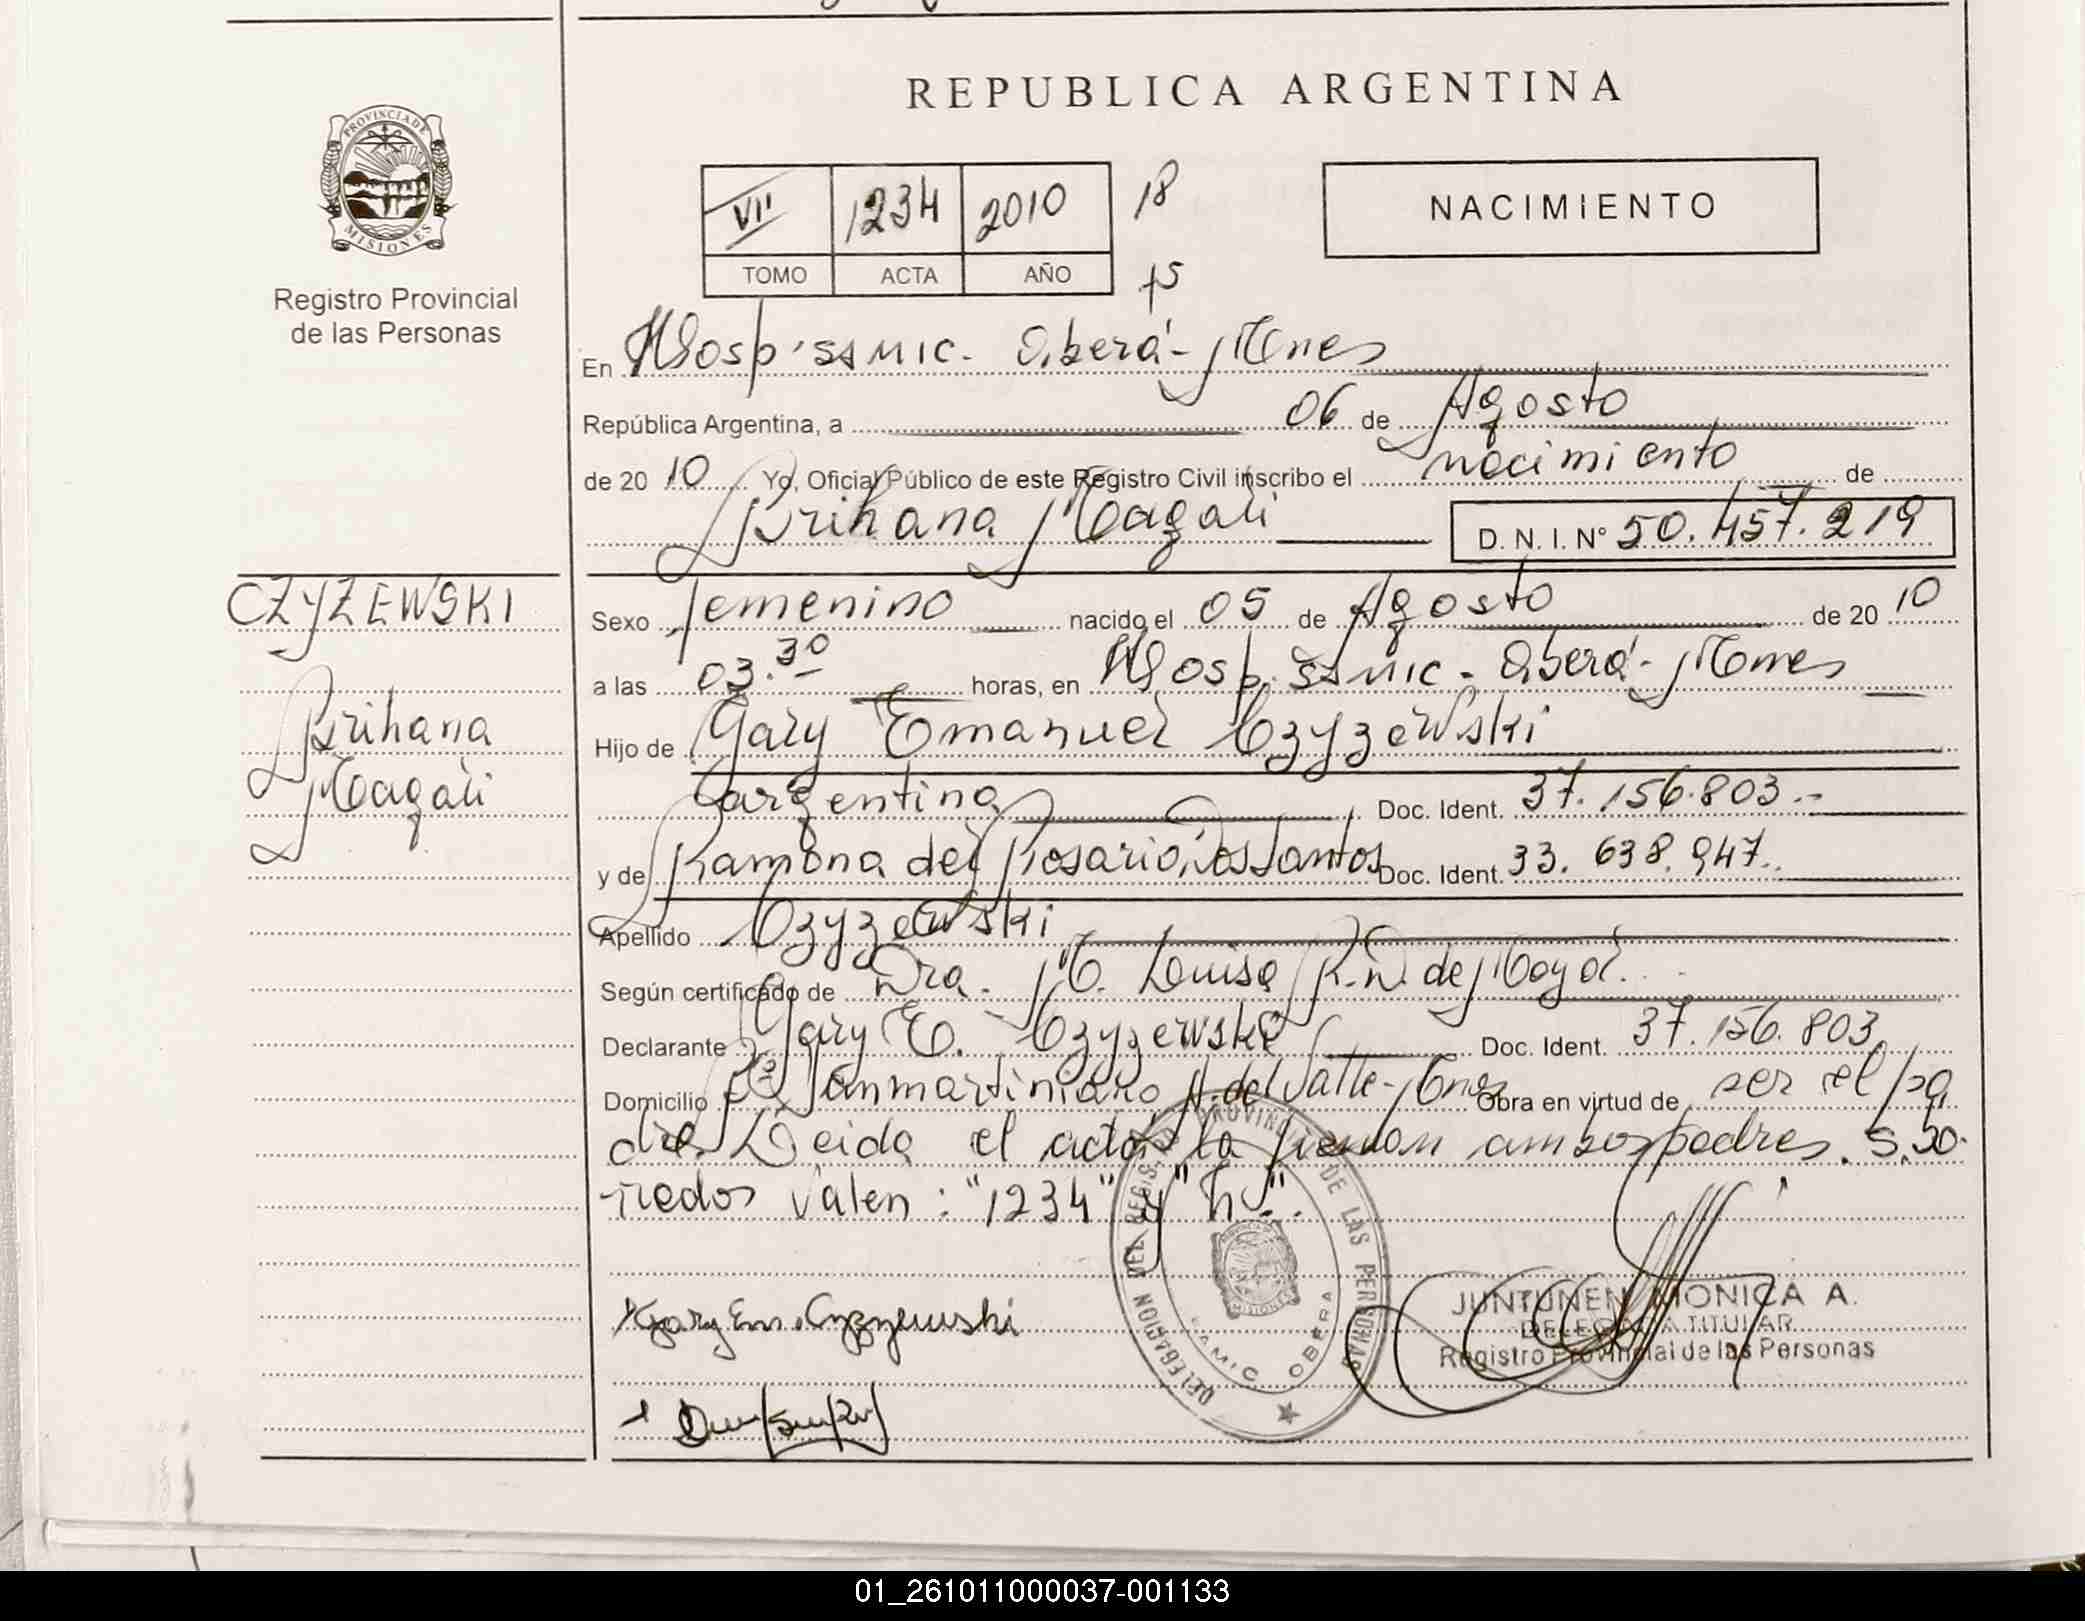 REPUBLICA ARGENTINA
PROVINCIA DE
MISIONES
Registro Provincial
de las Personas
VII 1234 2010 18
TOMO ACTA AÑO 75
NACIMIENTO
En Hosp. SAMIC. Oberá - Mnes
República Argentina, a 06 de Agosto
de 20 10 Yo, Oficial Público de este Registro Civil inscribo el nacimiento de
Brihana Magali D. N. I. Nº 50.457.219
CZYZEWSKI
Brihana
Magali
Sexo femenino nacido el 05 de Agosto de 20 10
a las 03.30 horas, en Hosp. SAMIC - Oberá - Mnes
Hijo de Gary Emanuel Czyzewski
argentino Doc. Ident. 37.156.803.-
y de Ramona del Rosario Dos Santos Doc. Ident. 33.638.947.
Apellido Czyzewski
Según certificado de Dra. M. Luisa R. D. de Moya.
Declarante Gary E. Czyzewski Doc. Ident. 37.156.803
Domicilio Sanmartiniano A. del Valle - Mnes Obra en virtud de ser el pa
dre. Leida el acta la firman ambos padres. S. bo-
rrados valen: "1234" y "h".
Gary Em. Czyzewski
DELEGACION DEL REGISTRO PROVINCIAL DE LAS PERSONAS
MISIONES
SAMIC OBERA
JUNTUNEN MONICA A.
DELEGADA TITULAR
Registro Provincial de las Personas
01_261011000037-001133